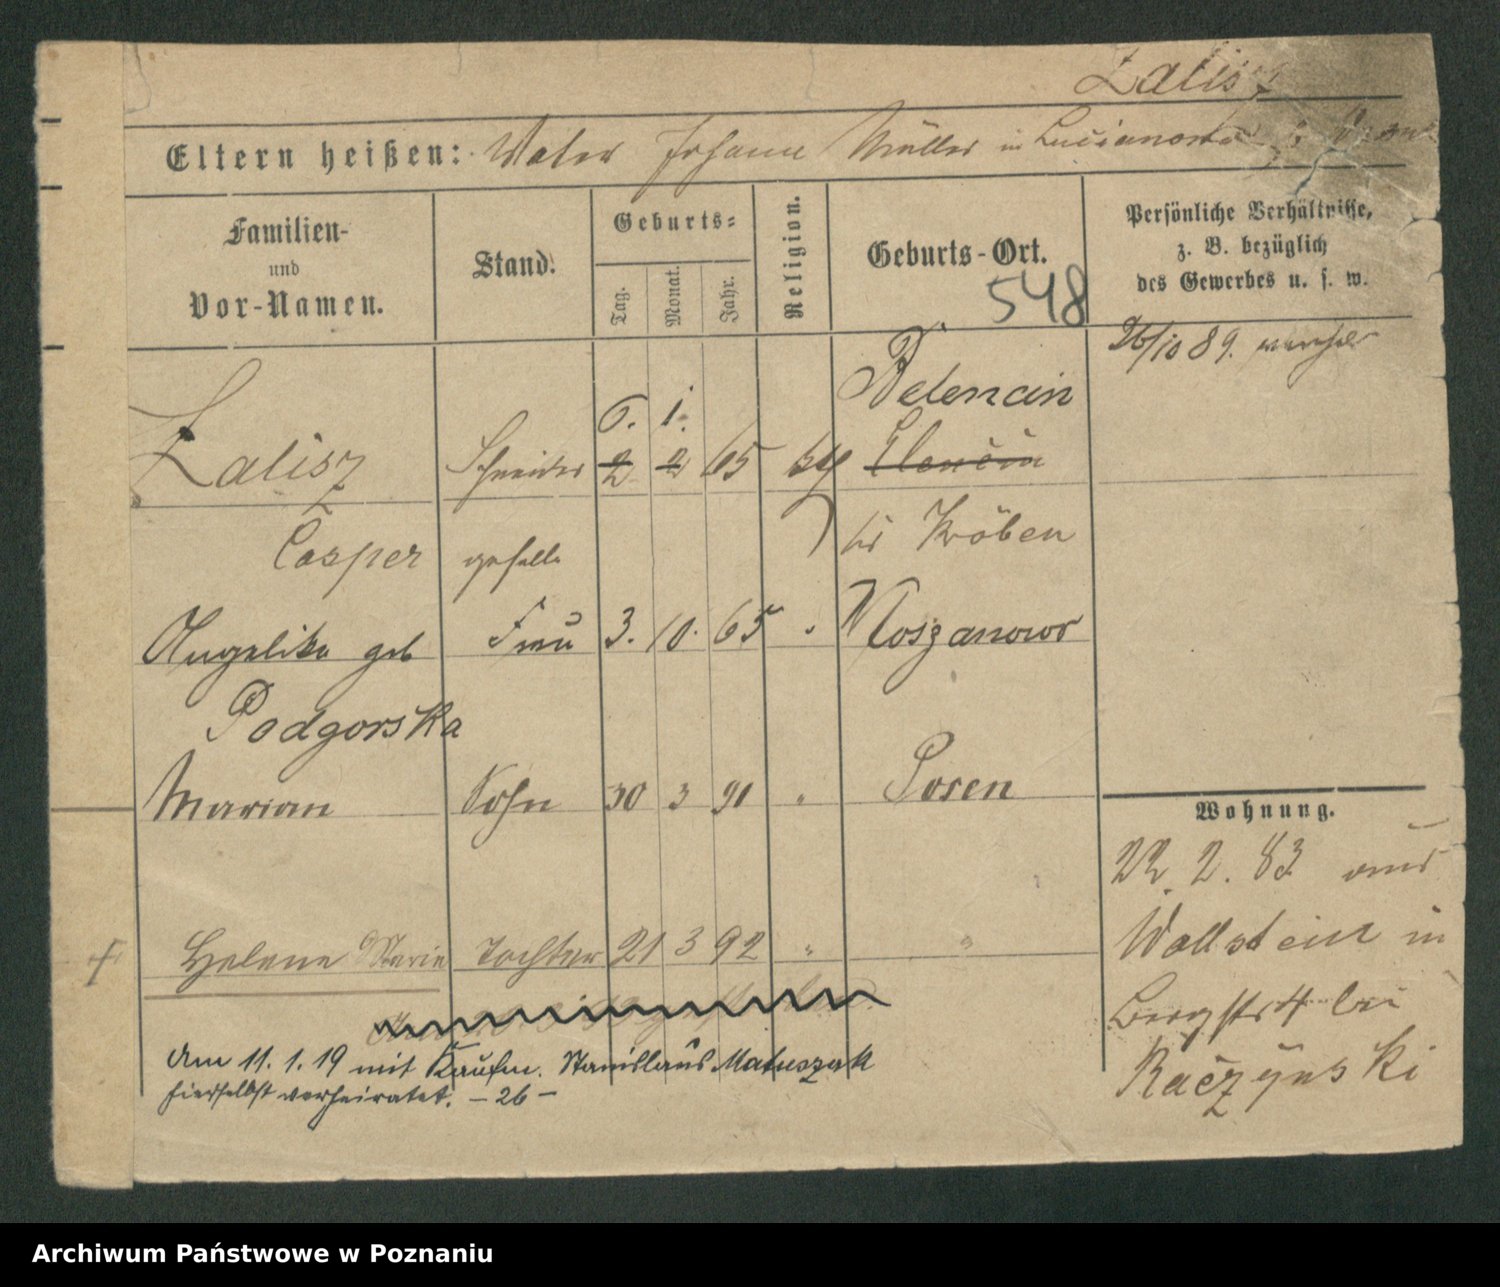 Zalisz
Eltern heißen: Vater Johann Müller in
Familien-
und
Vor-Namen.
Stand.
Geburts=
Tag.
Monat.
Jahr.
Religion.
Geburts-Ort.
548
Persönliche Verhältnisse,
z. B. bezüglich
des Gewerbes u. s. w.
26/10 89. verh
6. 1. Belencin
Zalisz Schneider 2 2 65 Elencin
Casper geselle bei Kröben
Angelika geb Frau 3. 10. 65 " Roszanowo
Podgorska
Marian Sohn 30 3 91 " Posen
Wohnung.
22. 2. 83 aus
Helene Marie Tochter 21 3 92 " "
Wollstein in
Bergstr 4 bei
Raczynski
Am 11. 1. 19 mit Kaufm. Stanislaus Matuszak
hierselbst verheiratet. – 26 –
Archiwum Państwowe w Poznaniu